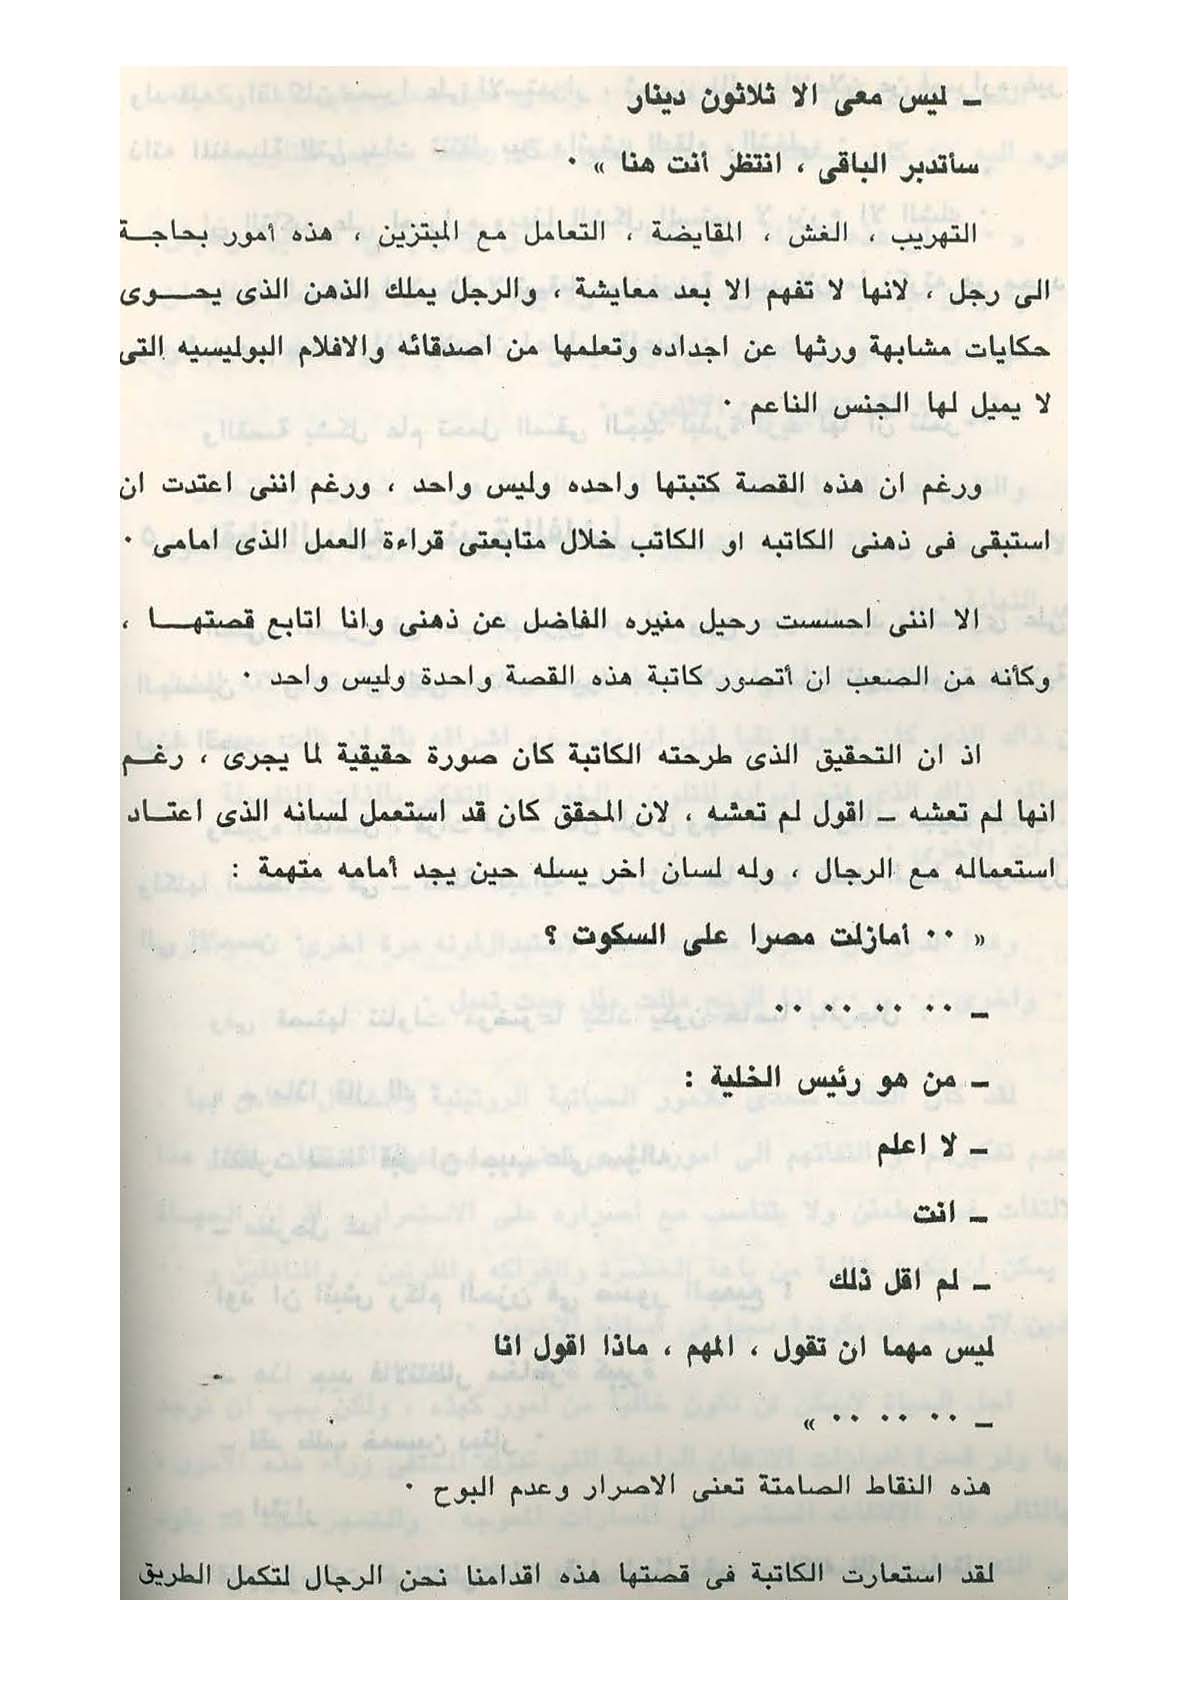 ـ ليس معى الا ثلاثون دينار
سأتدبر الباقى ، انتظر أنت هنا » ٠
التهريب ، الغش ، المقايضة ، التعامل مع المبتزين ، هذه أمور بحاجـة
الى رجل ، لانها لا تفهم الا بعد معايشة ، والرجل يملك الذهن الذى يحـــوى
حكايات مشابهة ورثها عن اجداده وتعلمها من اصدقائه والافلام البوليسيه التى
لا يميل لها الجنس الناعم ٠
ورغم ان هذه القصة كتبتها واحده وليس واحد ، ورغم اننى اعتدت ان
استبقى فى ذهنى الكاتبه او الكاتب خلال متابعتى قراءة العمل الذى امامى ٠
الا اننى احسست رحيل منيره الفاضل عن ذهنى وانا اتابع قصتهــا ،
وكأنه من الصعب ان أتصور كاتبة هذه القصة واحدة وليس واحد ٠
اذ ان التحقيق الذى طرحته الكاتبة كان صورة حقيقية لما يجرى ، رغـم
انها لم تعشه ـ اقول لم تعشه ، لان المحقق كان قد استعمل لسانه الذى اعتـاد
استعماله مع الرجال ، وله لسان اخر يسله حين يجد أمامه متهمة :
« ٠٠ أمازلت مصرا على السكوت ؟
ـ ٠٠ ٠٠ ٠٠ ٠٠
ـ من هو رئيس الخلية :
ـ لا اعلم
ـ انت
ـ لم اقل ذلك
ليس مهما ان تقول ، المهم ، ماذا اقول انا
ـ ٠٠ ٠٠ ٠٠ ٠٠ »
هذه النقاط الصامتة تعنى الاصرار وعدم البوح ٠
لقد استعارت الكاتبة فى قصتها هذه اقدامنا نحن الرجال لتكمل الطريق